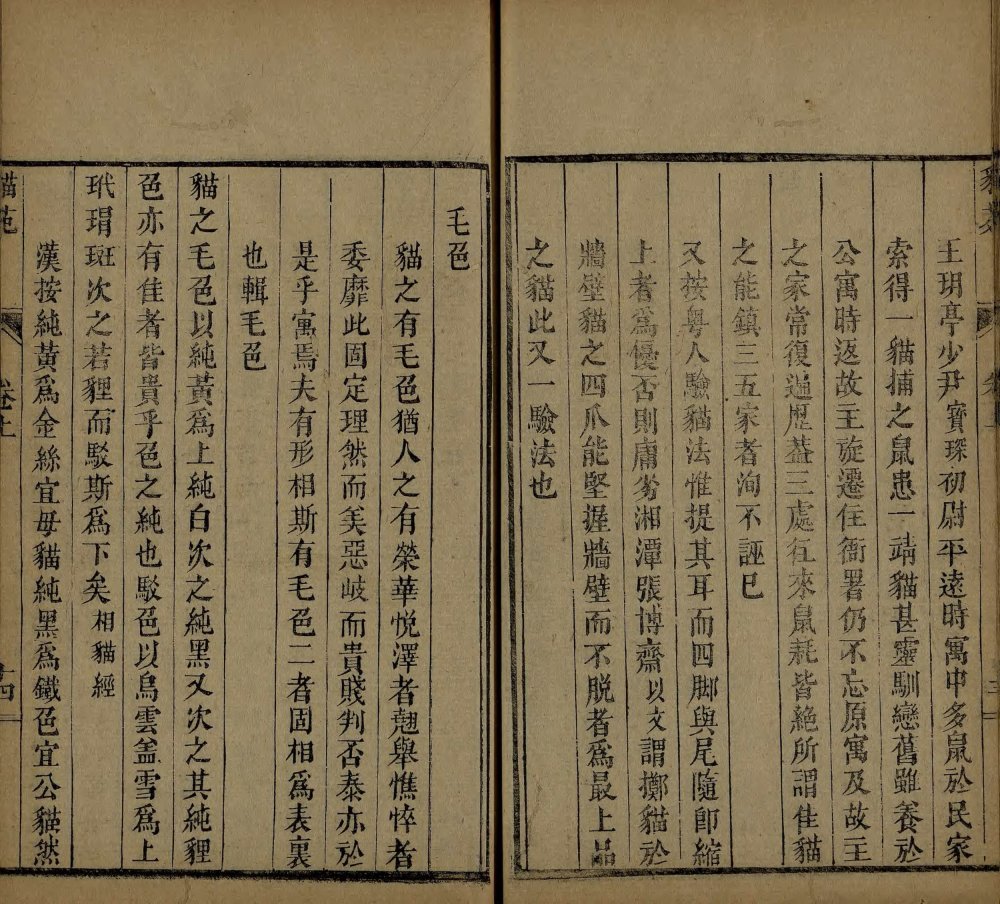 王玥亭少尹寳琛初尉平遠時寓中多鼠於民家
索得一貓捕之鼠患一靖貓甚靈馴戀舊雖養於
公寓時返故主旋遷住衙署仍不忘原寓及故主
之家常復過歷蓋三處徃來鼠耗皆絶所謂佳貓
之能鎮三五家者洵不誣已
又按粵人驗貓法惟提其耳而四脚與尾隨即縮
上者爲優否則庸劣湘潭張博齋以文謂擲貓於
牆壁貓之四爪能堅握牆壁而不脱者爲最上品
之貓此又一驗法也
毛色
貓之有毛色猶人之有榮華悅澤者翹舉憔悴者
委靡此固定理然而美惡歧而貴賤判否泰亦於
是乎寓焉夫有形相斯有毛色二者固相爲表裏
也輯毛色
貓之毛色以純黃爲上純白次之純黑又次之其純貍
色亦有佳者皆貴乎色之純也駁色以烏雲蓋雪爲上
玳瑁斑次之若貍而駁斯爲下矣相貓經
漢按純黃爲金絲宜母貓純黑爲鐵色宜公貓然
貓苑